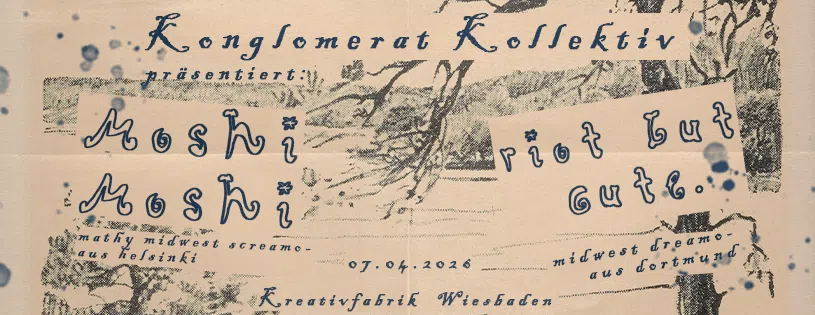 Konglomerat Kollektiv
präsentiert:
Moshi
Moshi
mathy midwest screamo-
aus helsinki
riot but
cute.
midwest dreamo-
aus dortmund
07.04.2026
Kreativfabrik Wiesbaden